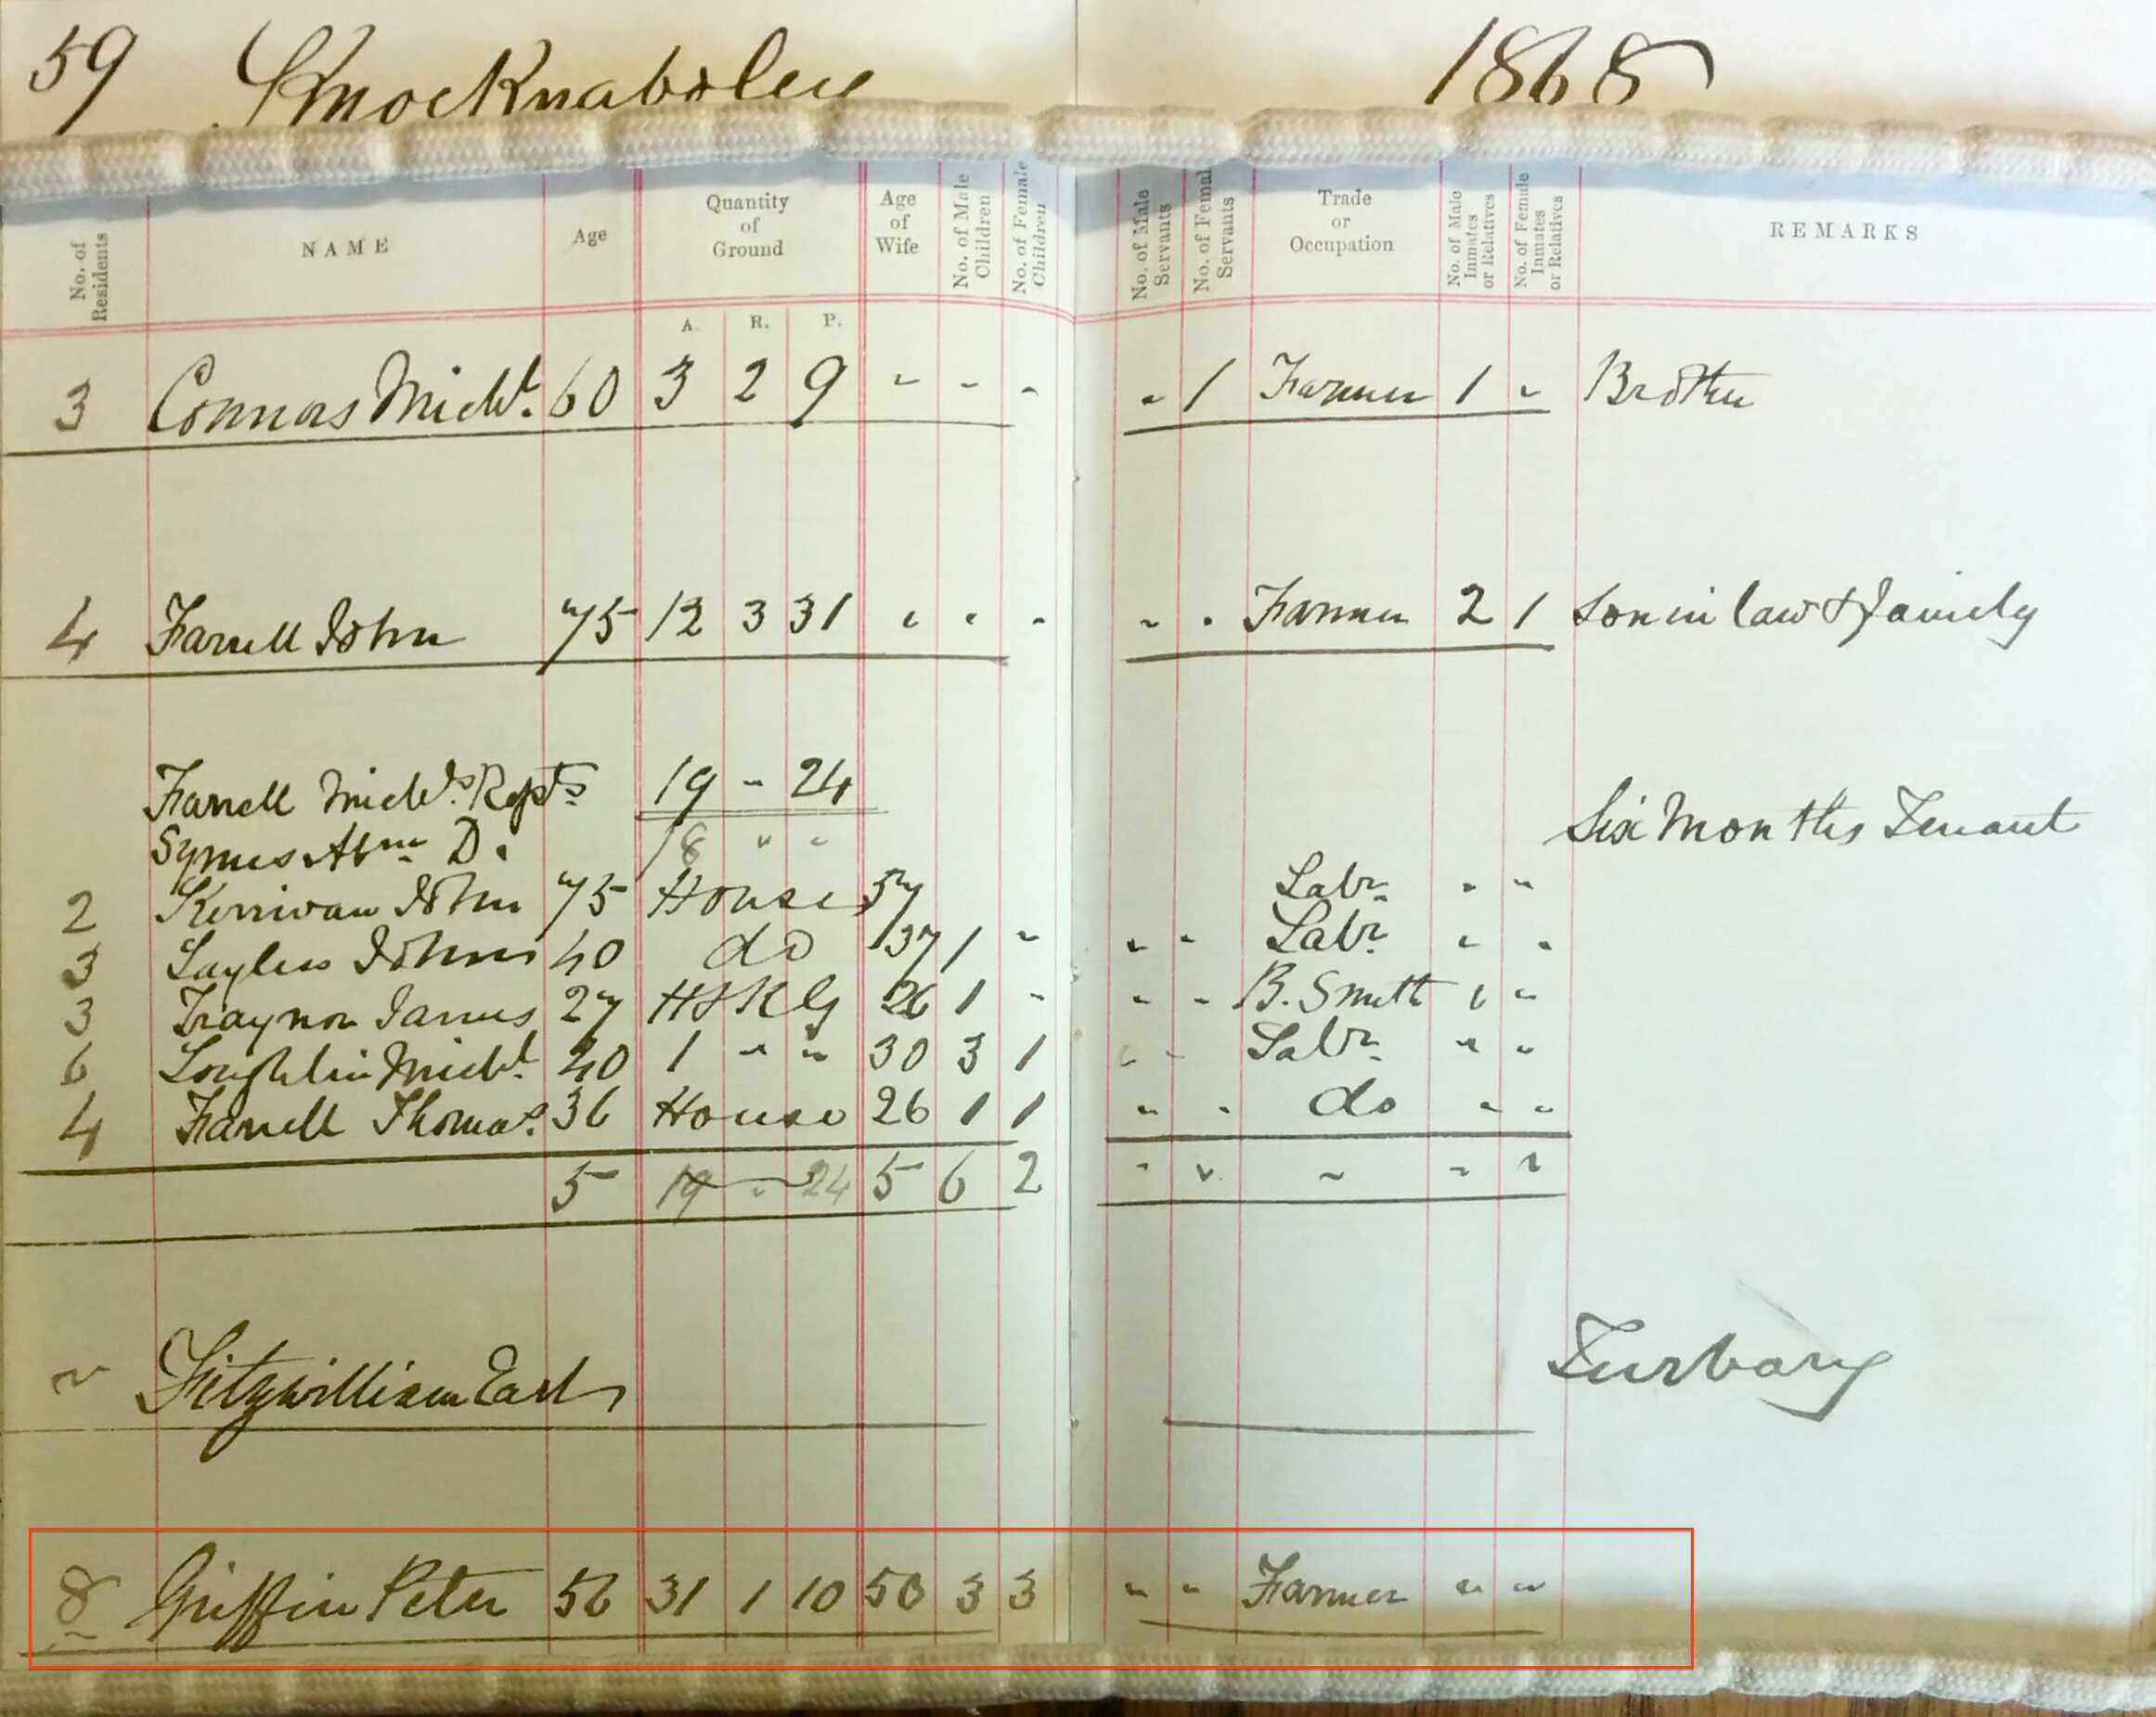 59 Knocknaboley 1868
No. of Residents NAME Age Quantity of Ground Age of Wife No. of Male Children No. of Female Children No. of Male Servants No. of Femal Servants Trade or Occupation No. of Male Inmates or Relatives No. of Female Inmates or Relatives REMARKS
A. R. P.
3 Connors Michl. 60 3 2 9 - - - - 1 Farmer 1 - Brother
4 Farrell John 75 12 3 31 - - - - - Farmer 2 1 Son in law & family
Farrell Michls. Repts 19 - 24
Symes Abm D. 18 " " Six Months Tenant
2 Kerrivan John 75 House 57 Labr. " "
3 Layless John 40 do 37 1 " " " Labr. " "
3 Traynor James 27 HSKG 26 1 " " " B. Smith " "
6 Loughlin Michl. 40 1 " " 30 3 1 " " Labr. " "
4 Farrell Thomas. 36 House 26 1 1 " " do " "
5 19 " 24 5 6 2 " " " " "
" Fitzwilliam Earl Turbary
8 Griffin Peter 56 31 1 10 50 3 3 " " Farmer " "